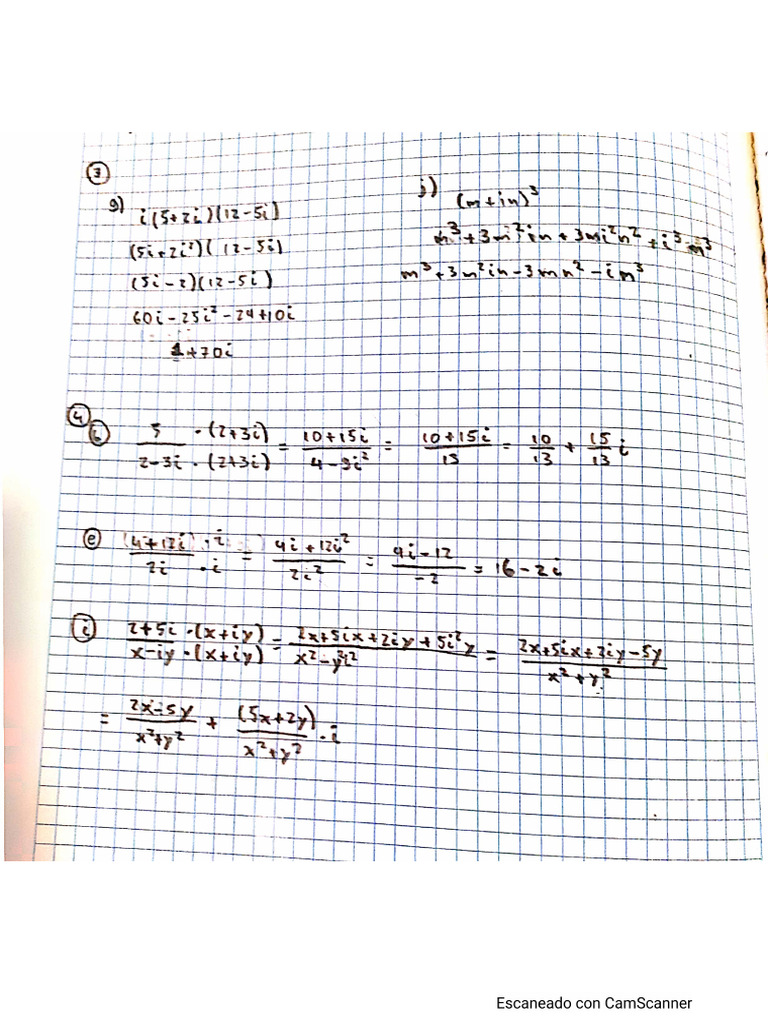 3
g) i(5+2i)(12-5i)
(5i+2i²)(12-5i)
(5i-2)(12-5i)
60i-25i²-24+10i
1+70i
j) (m+in)³
m³+3m²in+3mi²n²+i³m³
m³+3m²in-3mn²-im³
4
b 5/(2-3i) · (2+3i)/(2+3i) = (10+15i)/(4-9i²) = (10+15i)/13 = 10/13 + 15/13 i
e (4+12i)/2i · i/i = (4i+12i²)/2i² = (4i-12)/-2 = 16-2i
i (2+5i)/(x-iy) · (x+iy)/(x+iy) = (2x+5ix+2iy+5i²y)/(x²-y²i²) = (2x+5ix+2iy-5y)/(x²+y²)
= (2x-5y)/(x²+y²) + (5x+2y)/(x²+y²) · i
Escaneado con CamScanner